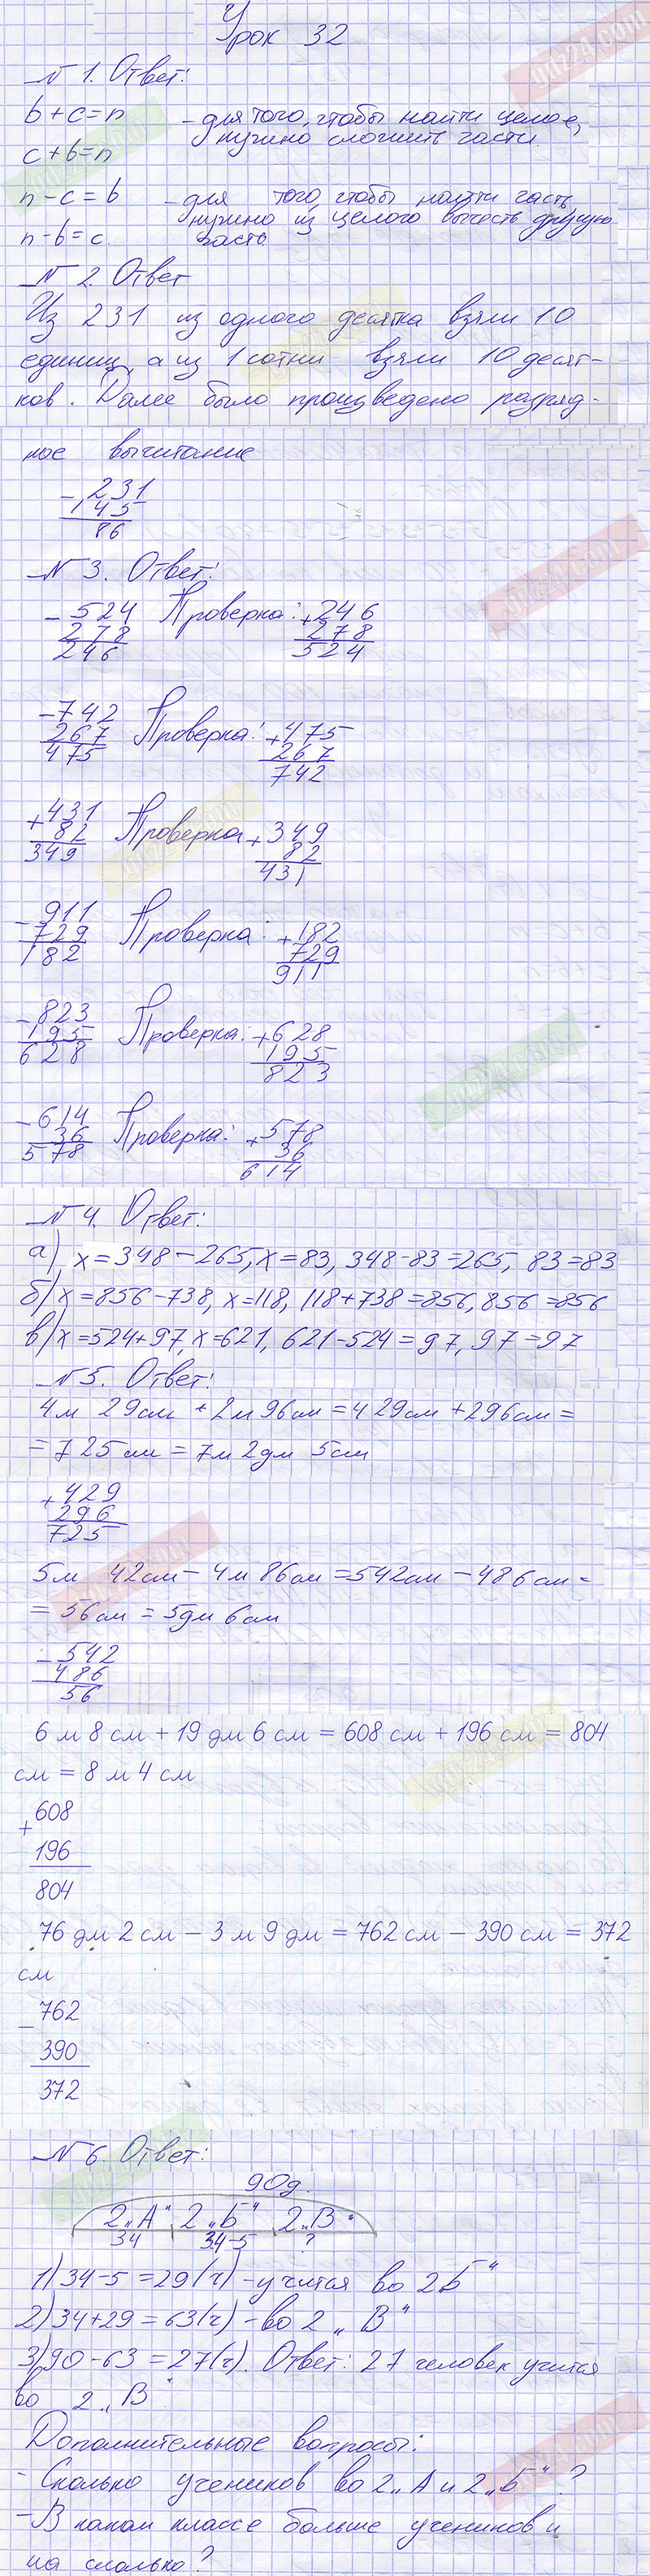 Урок 32
N 1. Ответ:
b+c=n - для того, чтобы найти целое,
нужно сложить части.
c+b=n
n-c=b - для того, чтобы найти часть,
нужно из целого вычесть другую
n-b=c. часть
N 2. Ответ
Из 231 из одного десятка взяли 10
единиц, а из 1 сотни взяли 10 десят-
ков. Далее было произведено разряд-
ное вычитание
- 231
145
86
N 3. Ответ:
- 524 Проверка: + 246
278 278
246 524
- 742 Проверка: + 475
267 267
475 742
+ 431 Проверка + 349
82 82
349 431
- 911 Проверка: + 182
729 729
182 911
- 823 Проверка: + 628
195 195
628 823
- 614 Проверка: + 578
36 36
578 614
N 4. Ответ:
а) x=348-265, x=83, 348-83=265, 83=83
б) x=856-738, x=118, 118+738=856, 856=856
в) x=524+97, x=621, 621-524=97, 97=97
N 5. Ответ:
4м 29см + 2м 96см = 429см + 296см =
= 725см = 7м 2дм 5см
+ 429
296
725
5м 42см - 4м 86см = 542см - 486см =
= 56см = 5дм 6см
- 542
486
56
6 м 8 см + 19 дм 6 см = 608 см + 196 см = 804
см = 8 м 4 см
+ 608
196
804
76 дм 2 см - 3 м 9 дм = 762 см - 390 см = 372
см
- 762
390
372
N 6. Ответ:
90д.
2 „А" 2 „Б" 2 „В"
34 34-5 ?
1) 34-5=29(ч) - учится во 2 Б"
2) 34+29=63(ч) - во 2 „В"
3) 90-63=27(ч). Ответ: 27 человек учится
во 2 „В"
Дополнительные вопросы:
- Сколько учеников во 2 „А и 2 „Б"?
- В каком классе больше учеников и
на сколько?